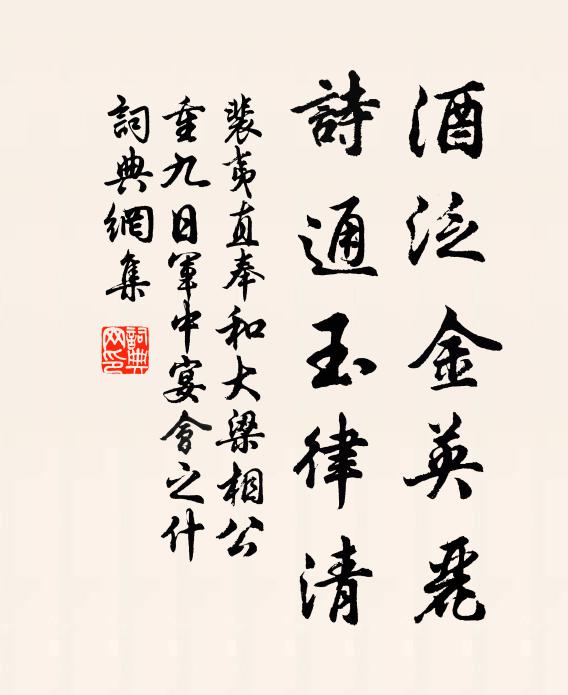 酒泛金英麗
詩通玉律清
裴夷直奉和大梁相公
重九日軍中宴會之什
詞典網集
詞典
网印